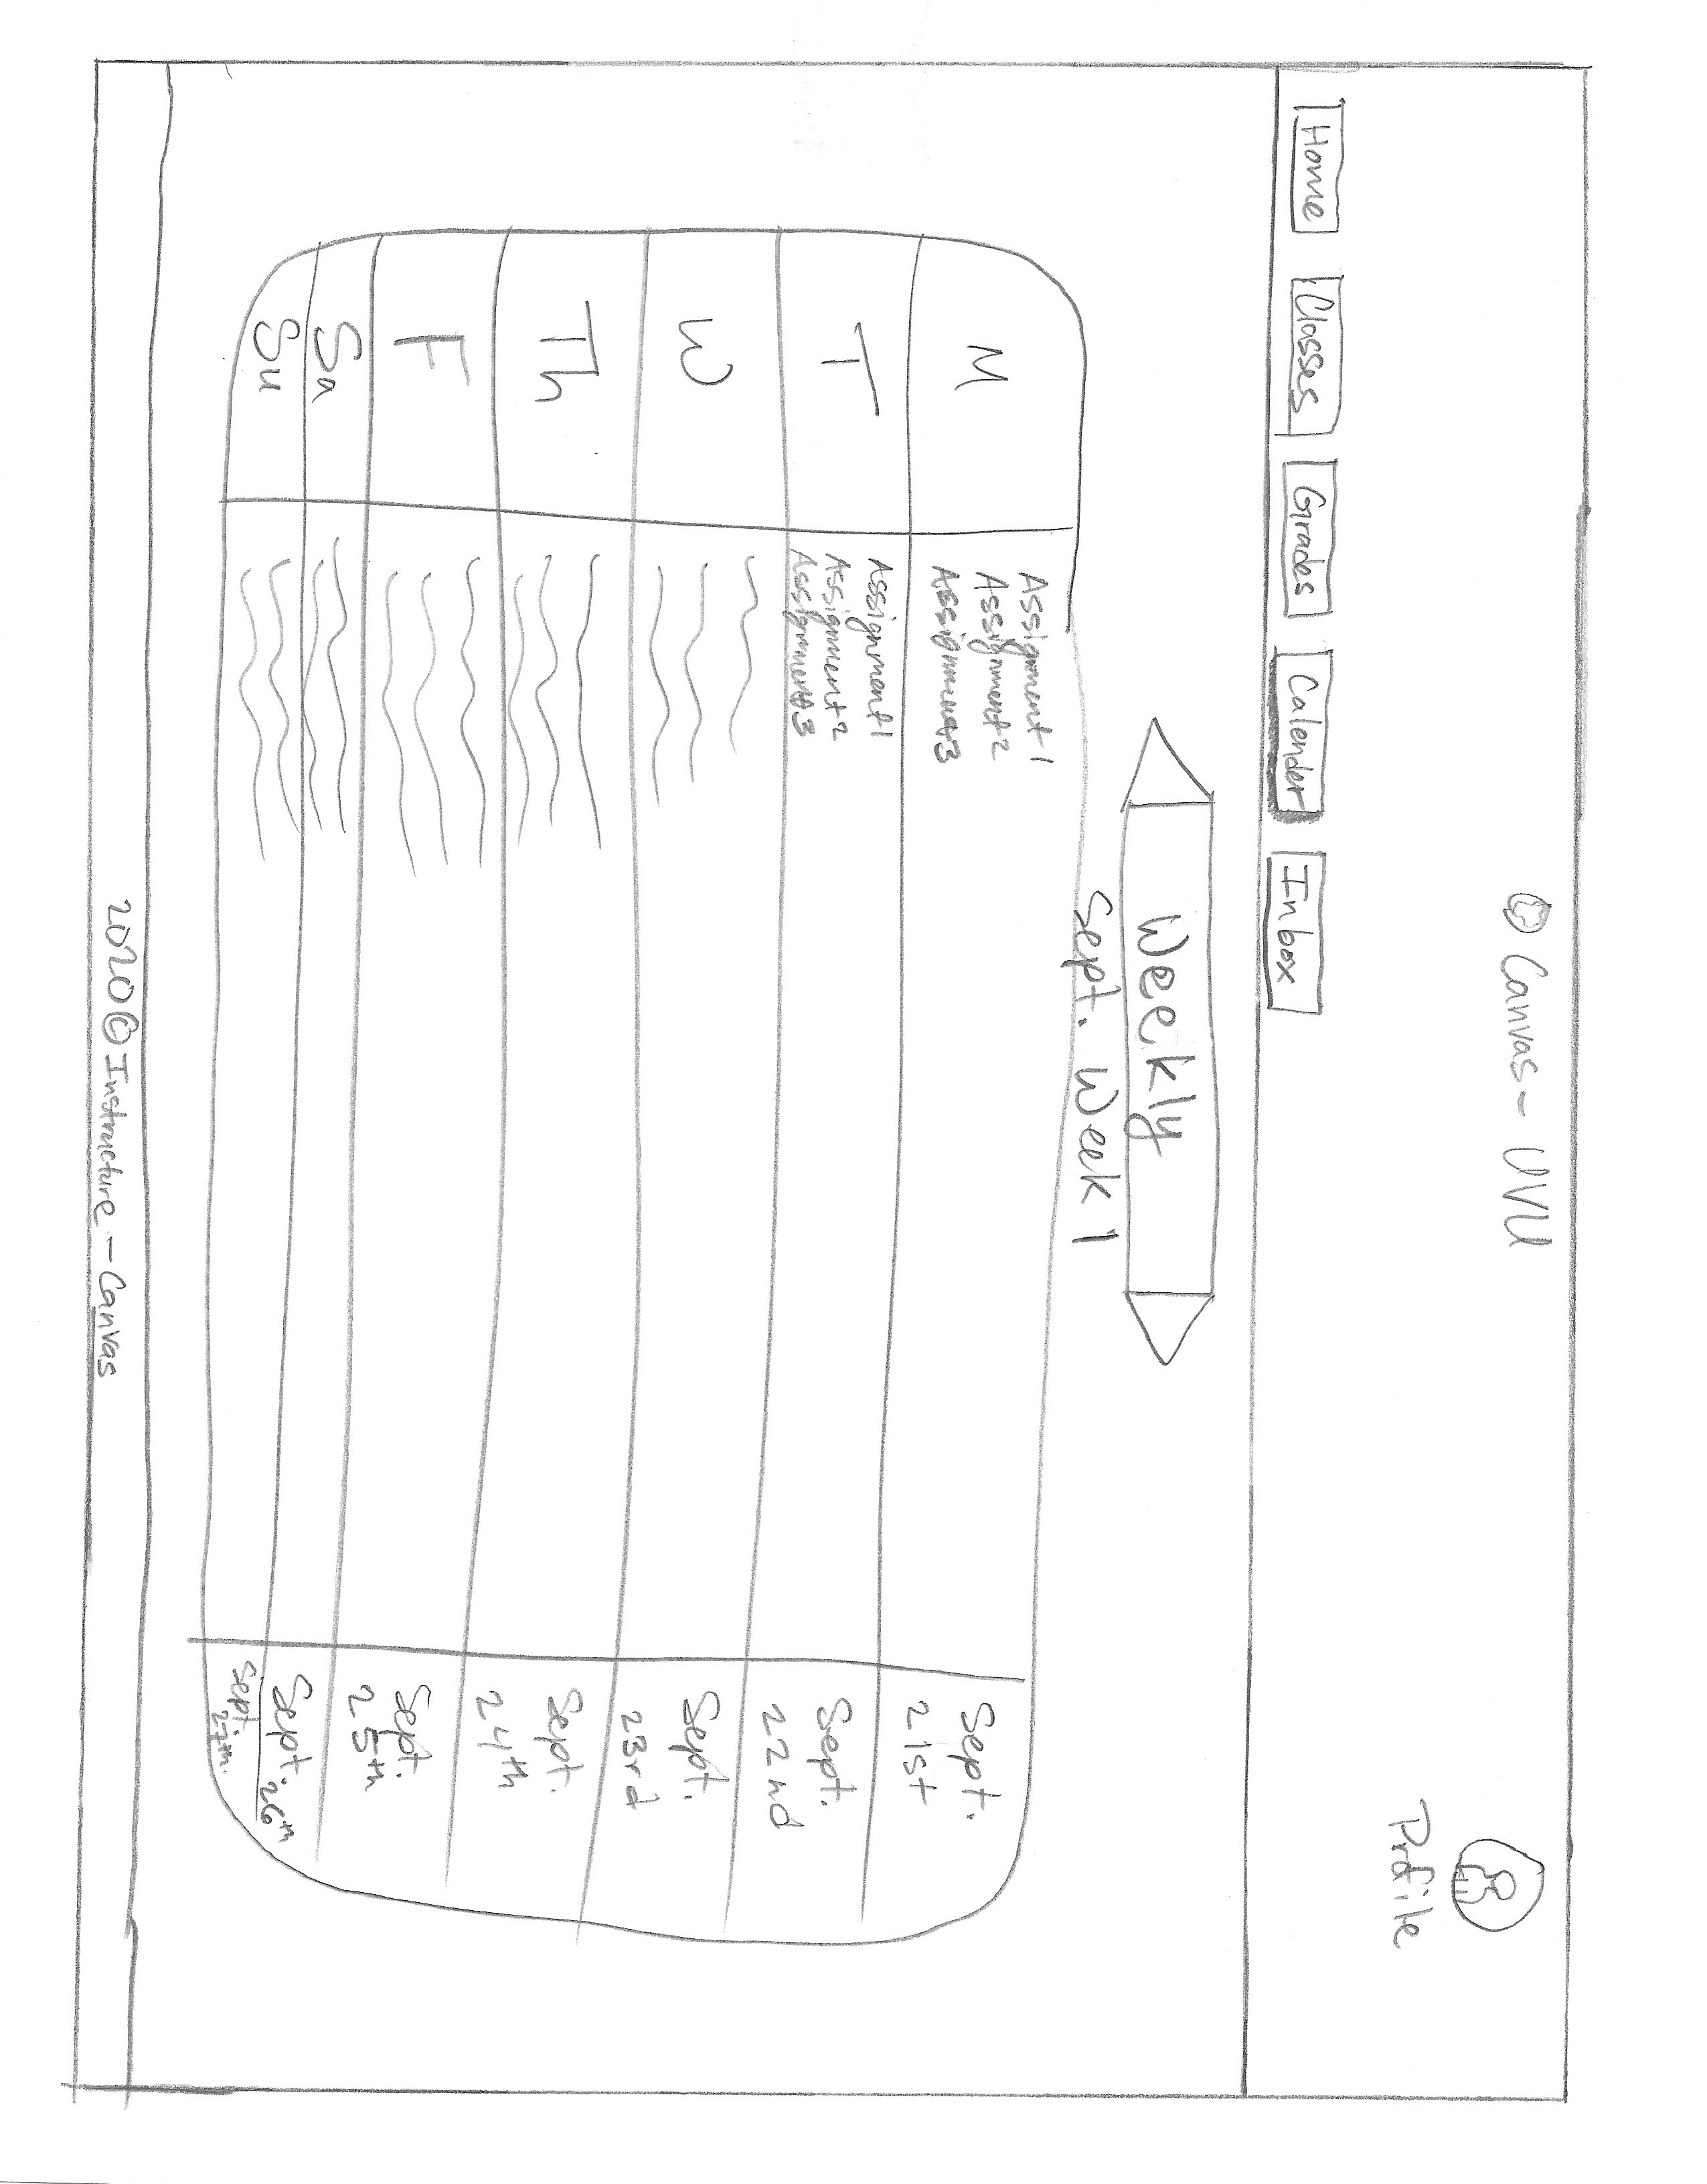 Canvas - UVU
Profile
Home
Classes
Grades
Calender
Inbox
Weekly
Sept. Week 1
M
Assignment 1
Assignment 2
Assignment 3
Sept.
21st
T
Assignment 1
Assignment 2
Assignment 3
Sept.
22nd
W
Sept.
23rd
Th
Sept.
24th
F
Sept.
25th
Sa
Sept. 26th
Su
Sept.
27th.
2020 © Instructure - Canvas